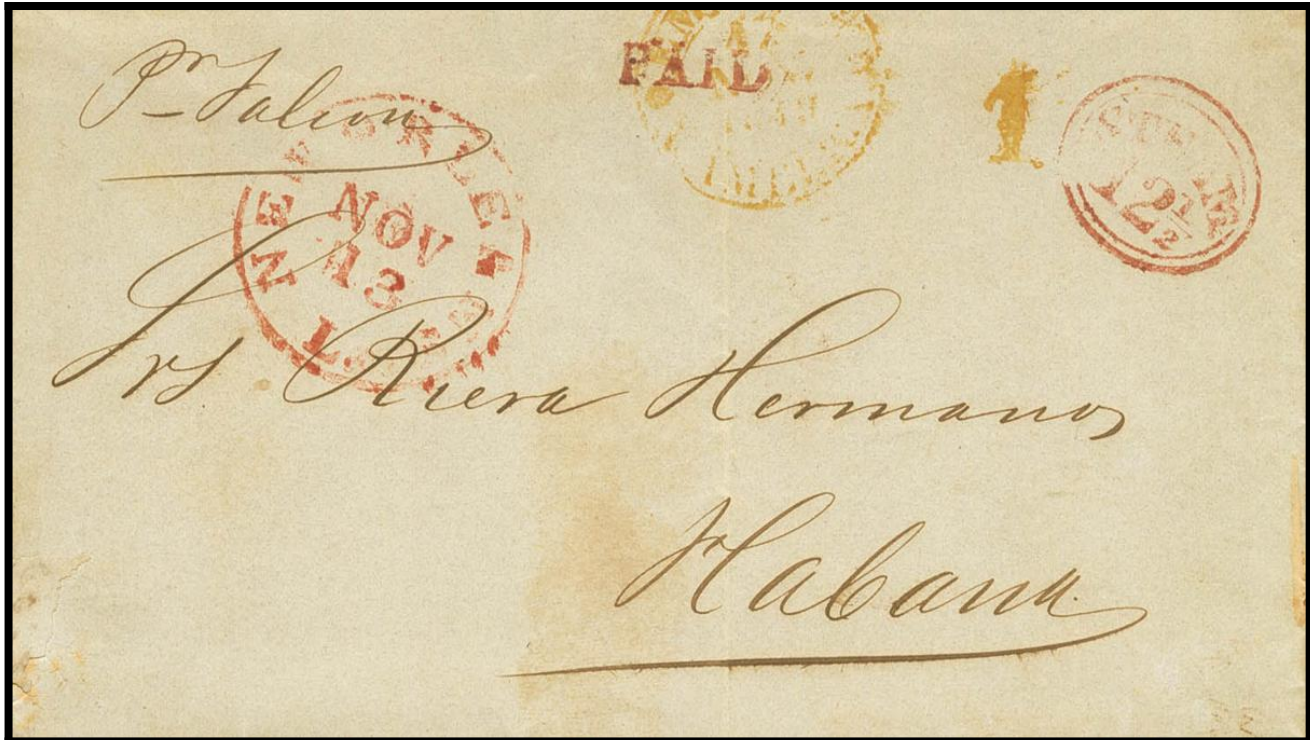 Pr Falcon
PAID
1
STEAM
12½
NEW ORLEANS
NOV
13
Srs Riera Hermanos
Habana.